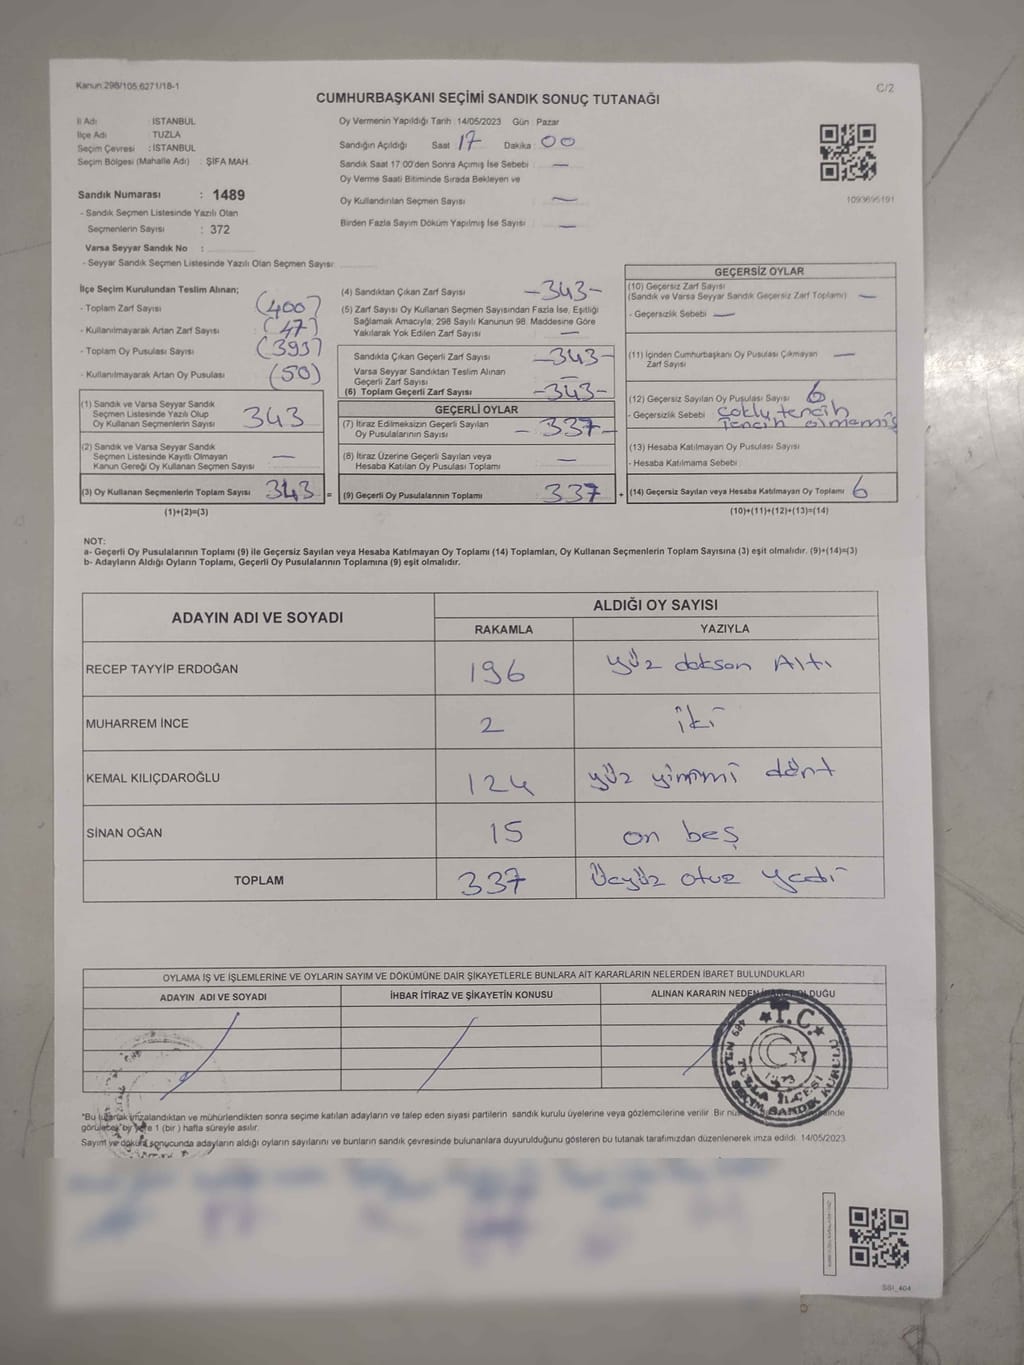 Kanun:298/105,6271/18-1
C/2
CUMHURBAŞKANI SEÇİMİ SANDIK SONUÇ TUTANAĞI
İl Adı : İSTANBUL
İlçe Adı : TUZLA
Seçim Çevresi : İSTANBUL
Seçim Bölgesi (Mahalle Adı) : ŞİFA MAH.
Sandık Numarası : 1489
- Sandık Seçmen Listesinde Yazılı Olan
Seçmenlerin Sayısı : 372
Varsa Seyyar Sandık No :
- Seyyar Sandık Seçmen Listesinde Yazılı Olan Seçmen Sayısı:
Oy Vermenin Yapıldığı Tarih :14/05/2023 Gün : Pazar
Sandığın Açıldığı Saat : 17 Dakika : 00
Sandık Saat 17:00'den Sonra Açımış İse Sebebi : —
Oy Verme Saati Bitiminde Sırada Bekleyen ve
Oy Kullandırılan Seçmen Sayısı : —
Birden Fazla Sayım Döküm Yapılmış İse Sayısı : —
1093695191
İlçe Seçim Kurulundan Teslim Alınan;
- Toplam Zarf Sayısı (400)
- Kullanılmayarak Artan Zarf Sayısı (47)
- Toplam Oy Pusulası Sayısı (393)
- Kullanılmayarak Artan Oy Pusulası (50)
(1) Sandık ve Varsa Seyyar Sandık
Seçmen Listesinde Yazılı Olup
Oy Kullanan Seçmenlerin Sayısı 343
(2) Sandık ve Varsa Seyyar Sandık
Seçmen Listesinde Kayıtlı Olmayan
Kanun Gereği Oy Kullanan Seçmen Sayısı —
(3) Oy Kullanan Seçmenlerin Toplam Sayısı 343 =
(1)+(2)=(3)
(4) Sandıktan Çıkan Zarf Sayısı -343-
(5) Zarf Sayısı Oy Kullanan Seçmen Sayısından Fazla İse, Eşitliği
Sağlamak Amacıyla; 298 Sayılı Kanunun 98. Maddesine Göre
Yakılarak Yok Edilen Zarf Sayısı —
Sandıkta Çıkan Geçerli Zarf Sayısı -343-
Varsa Seyyar Sandıktan Teslim Alınan
Geçerli Zarf Sayısı —
(6) Toplam Geçerli Zarf Sayısı -343-
GEÇERLİ OYLAR
(7) İtiraz Edilmeksizin Geçerli Sayılan
Oy Pusulalarının Sayısı - 337-
(8) İtiraz Üzerine Geçerli Sayılan veya
Hesaba Katılan Oy Pusulası Toplamı —
(9) Geçerli Oy Pusulalarının Toplamı 337 +
GEÇERSİZ OYLAR
(10) Geçersiz Zarf Sayısı
(Sandık ve Varsa Seyyar Sandık Geçersiz Zarf Toplamı) —
- Geçersizlik Sebebi : —
(11) İçinden Cumhurbaşkanı Oy Pusulası Çıkmayan —
Zarf Sayısı
(12) Geçersiz Sayılan Oy Pusulası Sayısı 6
- Geçersizlik Sebebi : çoklu tercih
Tercih olmamış
(13) Hesaba Katılmayan Oy Pusulası Sayısı
- Hesaba Katılmama Sebebi :
(14) Geçersiz Sayılan veya Hesaba Katılmayan Oy Toplamı 6
(10)+(11)+(12)+(13)=(14)
NOT:
a- Geçerli Oy Pusulalarının Toplamı (9) ile Geçersiz Sayılan veya Hesaba Katılmayan Oy Toplamı (14) Toplamları, Oy Kullanan Seçmenlerin Toplam Sayısına (3) eşit olmalıdır. (9)+(14)=(3)
b- Adayların Aldığı Oyların Toplamı, Geçerli Oy Pusulalarının Toplamına (9) eşit olmalıdır.
ADAYIN ADI VE SOYADI
ALDIĞI OY SAYISI
RAKAMLA YAZIYLA
RECEP TAYYİP ERDOĞAN 196 yüz doksan Altı
MUHARREM İNCE 2 iki
KEMAL KILIÇDAROĞLU 124 yüz yirmi dört
SİNAN OĞAN 15 on beş
TOPLAM 337 Üçyüz otuz yedi
OYLAMA İŞ VE İŞLEMLERİNE VE OYLARIN SAYIM VE DÖKÜMÜNE DAİR ŞİKAYETLERLE BUNLARA AİT KARARLARIN NELERDEN İBARET BULUNDUKLARI
ADAYIN ADI VE SOYADI İHBAR İTİRAZ VE ŞİKAYETİN KONUSU ALINAN KARARIN NEDEN OLDUĞU
T.C.
TUZLA İLÇESİ
"Bu tutanak imzalandıktan ve mühürlendikten sonra seçime katılan adayların ve talep eden siyasi partilerin sandık kurulu üyelerine veya gözlemcilerine verilir. Bir
1 (bir ) hafta süreyle asılır.
Sayım ve döküm sonucunda adayların aldığı oyların sayılarını ve bunların sandık çevresinde bulunanlara duyurulduğunu gösteren bu tutanak tarafımızdan düzenlenerek imza edildi. 14/05/2023
SSI_404